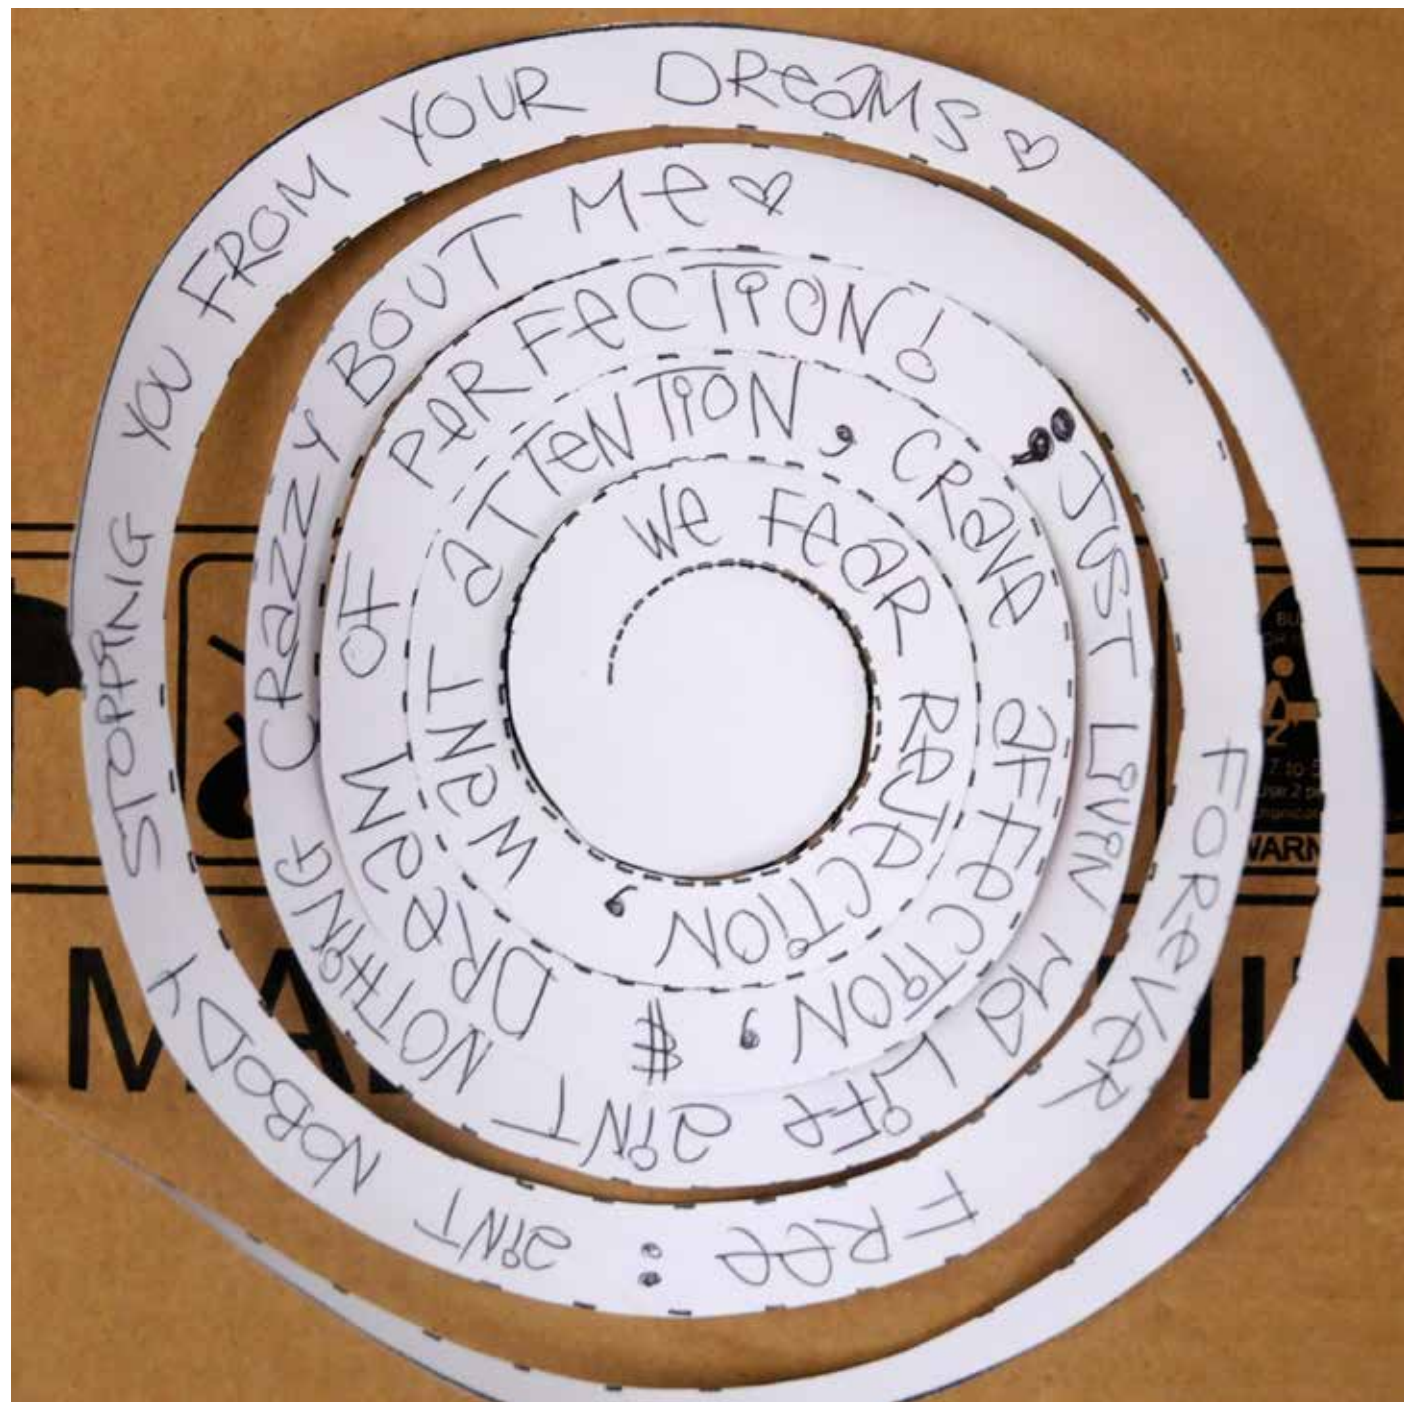 We FeaR RaJeCTiON,
WaNT aTTeNTiON,
CRaVe aFFeCTiON,
$ DReaM OF PeRFeCTiON!
JUST LiViN Ma LiFe aiNT NOTHiNG CRaZZY BOUT Me ♡
FOReVeR FRee : aiNT NOBODY STOPPiNG YOU FROM YOUR DReaMS ♡
WARN